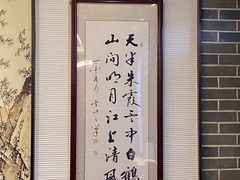 天半朱霞云中白鹤
山间明月江上清风